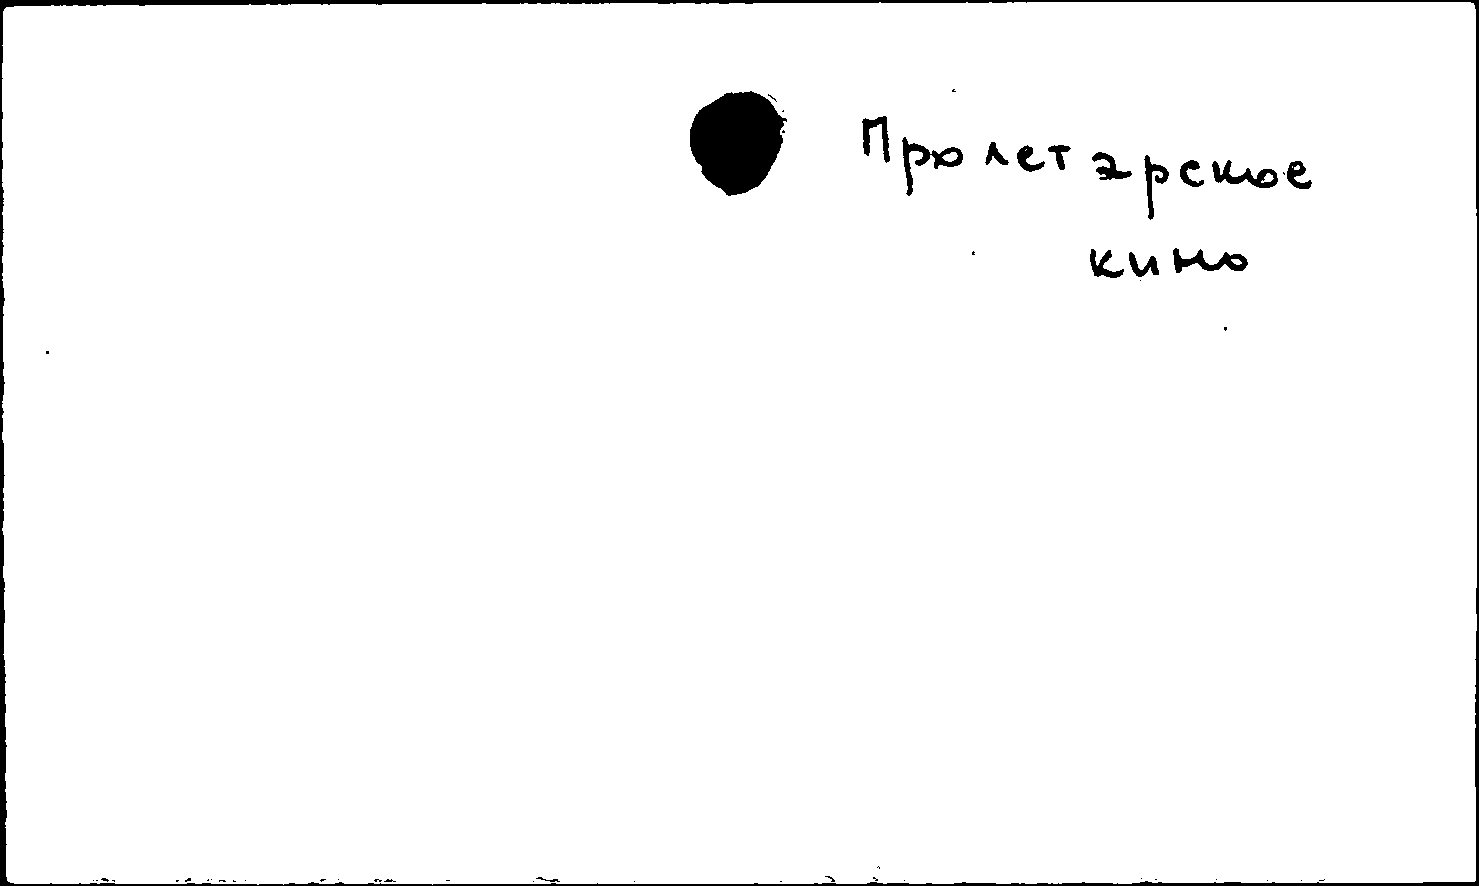 Пролетарское
кино